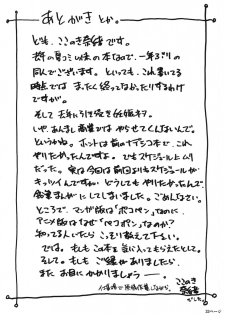 あとがき とか。
ども、ここのき奈緒です。
去年の夏コミ以来の本なので、一年ぶりの
同人でございます。といっても、これ書いてる
時点では まったく終ってなかったりするわけ
ですが。
そして 去年に引き続き妊娠ネタ。
いや、あんまし商業では やらせてくんないんで。
というかね。ホントは前のナデシコ本で、これ
やりたかったんですよ。でもスケジュール上ムリ
だった。実は今回は前回よりもスケジュールが
キッツイんですがね。どうしてもやりたかったんで
マンガにしてしまいました。ごめんなさい。
ところで、マンガ版は「ポコペン」なのに、
アニメ版はなぜ「ペコポン」なのか?
知ってる人いたら こっそり教えて下さい。
では。もしもこの本を気に入ってもらえたとして。
そして。もしも ご縁がありましたら、
また お目にかかりましょうー。
ここのき
奈緒
でした。